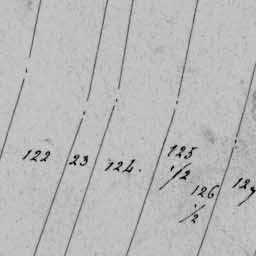 122 23 124. 125
1/2
126 127
1/2